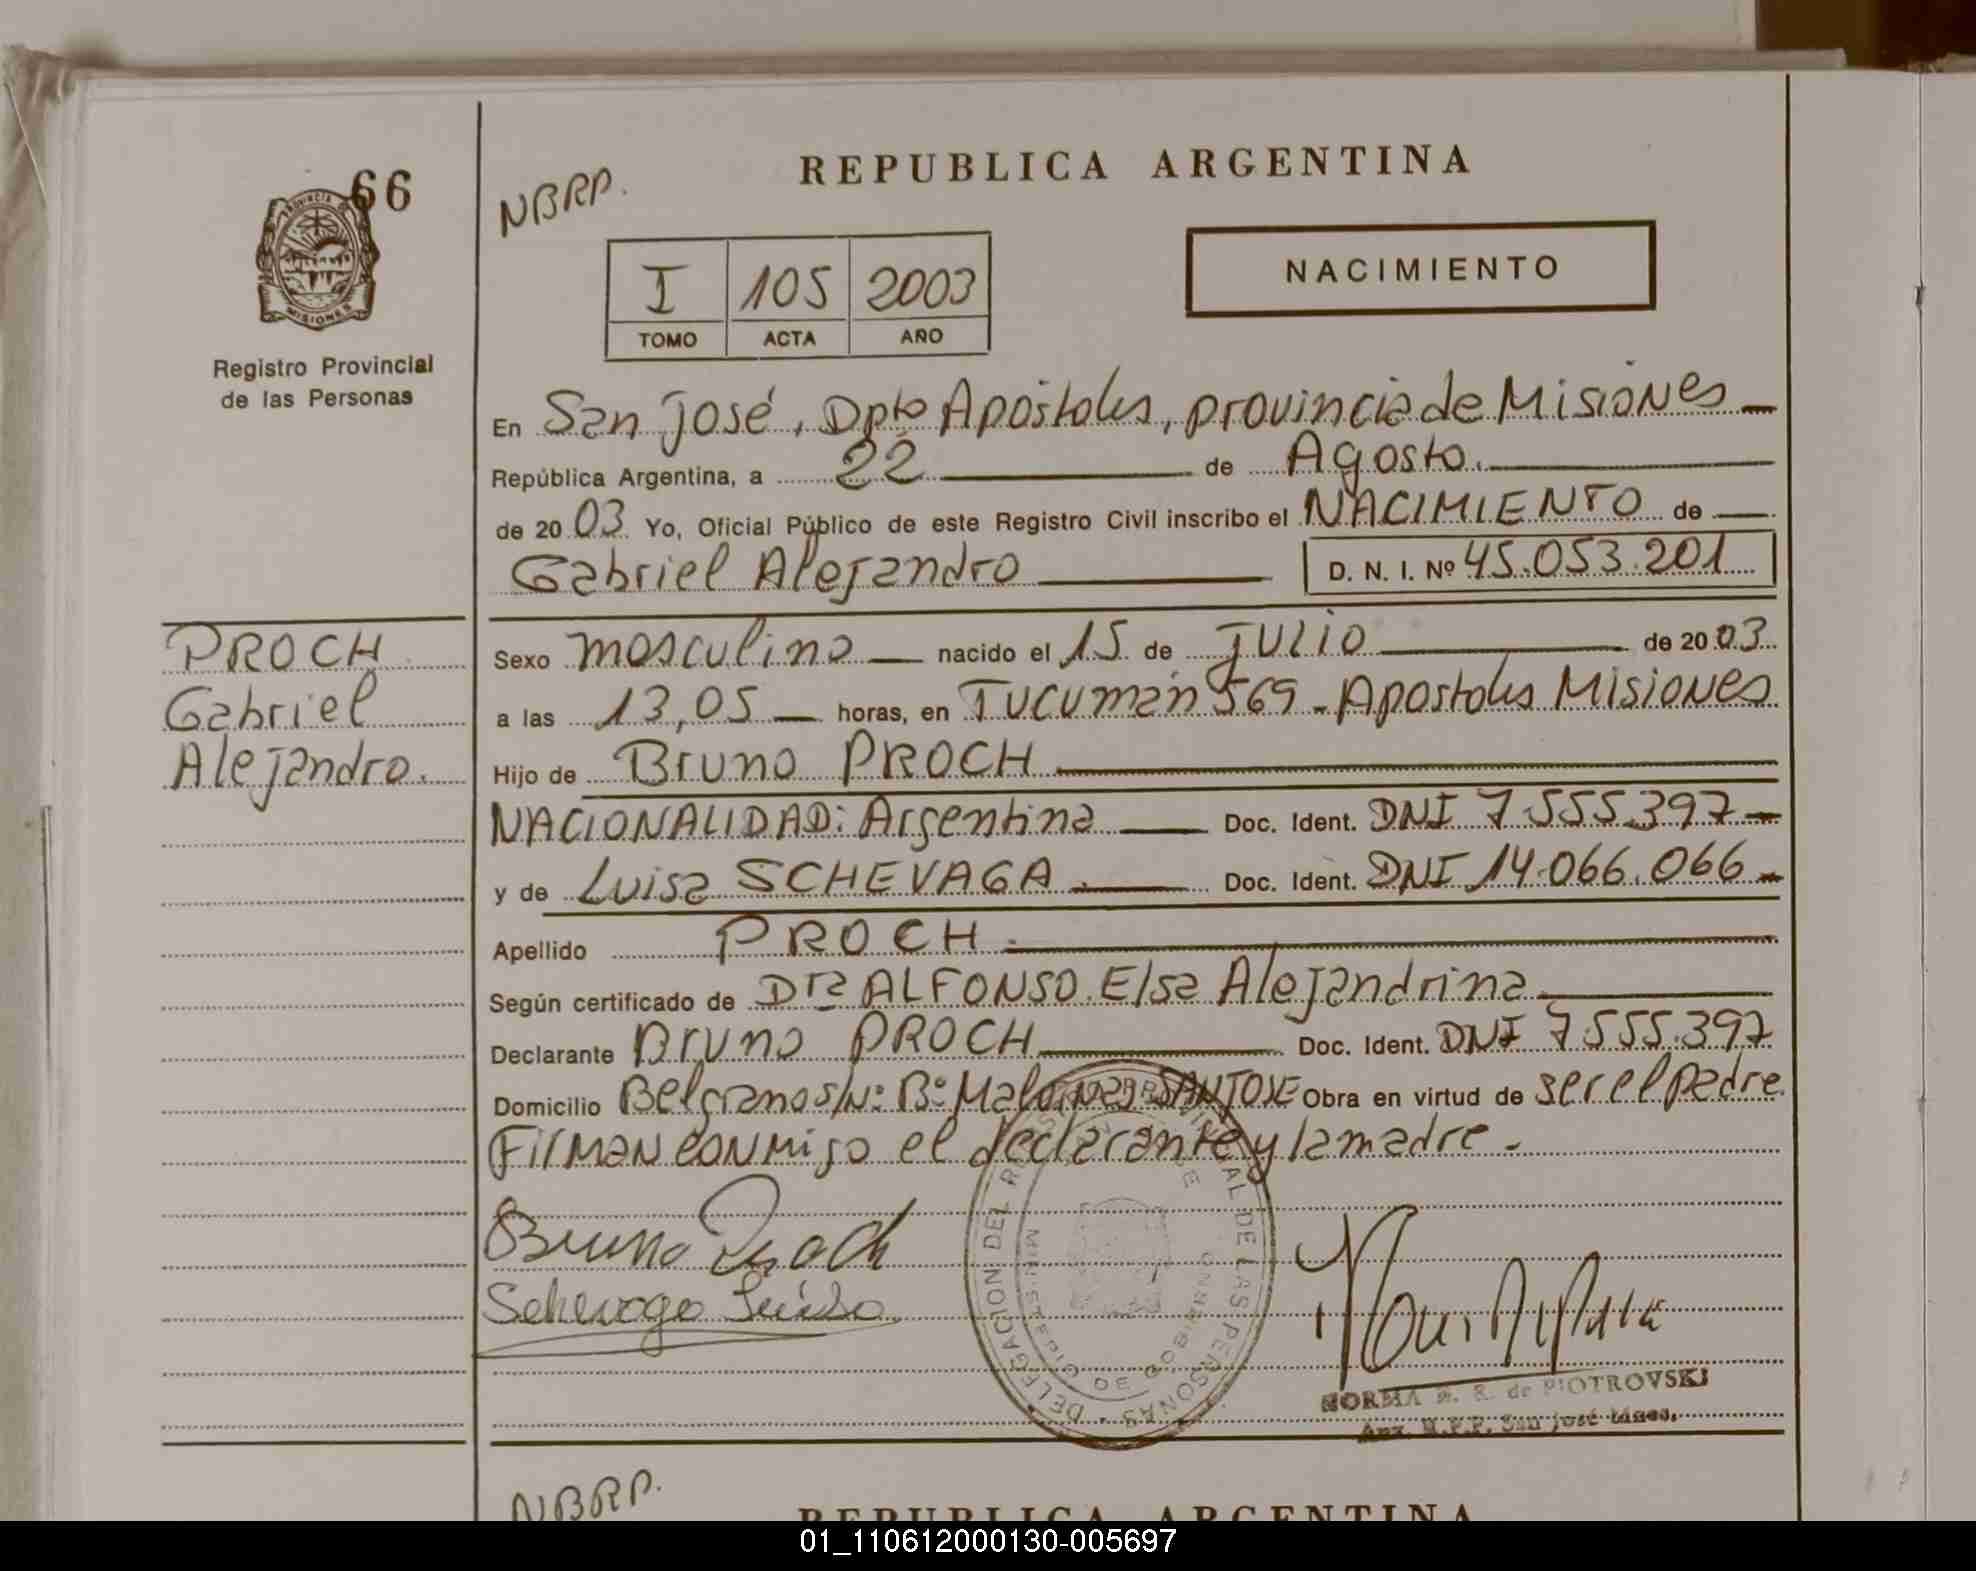 66
PROVINCIA DE
MISIONES
Registro Provincial
de las Personas
PROCH
Gabriel
Alejandro.
NBRP.
REPUBLICA ARGENTINA
I 105 2003
TOMO ACTA AÑO
NACIMIENTO
En San José, Dpto Apóstoles, provincia de Misiones
República Argentina, a 22 de Agosto.
de 20 03 Yo, Oficial Público de este Registro Civil inscribo el NACIMIENTO de
Gabriel Alejandro D. N. I. Nº 45.053.201
Sexo masculino nacido el 15 de JULIO de 20 03
a las 13,05 horas, en Tucumán 569 - Apostoles Misiones
Hijo de Bruno PROCH
NACIONALIDAD: Argentina Doc. Ident. DNI 7.555.397
y de Luisa SCHEVAGA Doc. Ident. DNI 14.066.066
Apellido PROCH
Según certificado de Dra ALFONSO Elsa Alejandrina
Declarante Bruno PROCH Doc. Ident. DNI 7.555.397
Domicilio Belgrano S/Nº Bº Malvinas SAN JOSE Obra en virtud de ser el padre
Firman conmigo el declarante y la madre.
Bruno Proch
Schevaga Luisa
DELEGACION DEL REGISTRO PROVINCIAL DE LAS PERSONAS
DE GOBIERNO
NORMA R. de PIOTROVSKI
R.P.P. San José Mnes.
NBRP.
REPUBLICA ARGENTINA
01_110612000130-005697